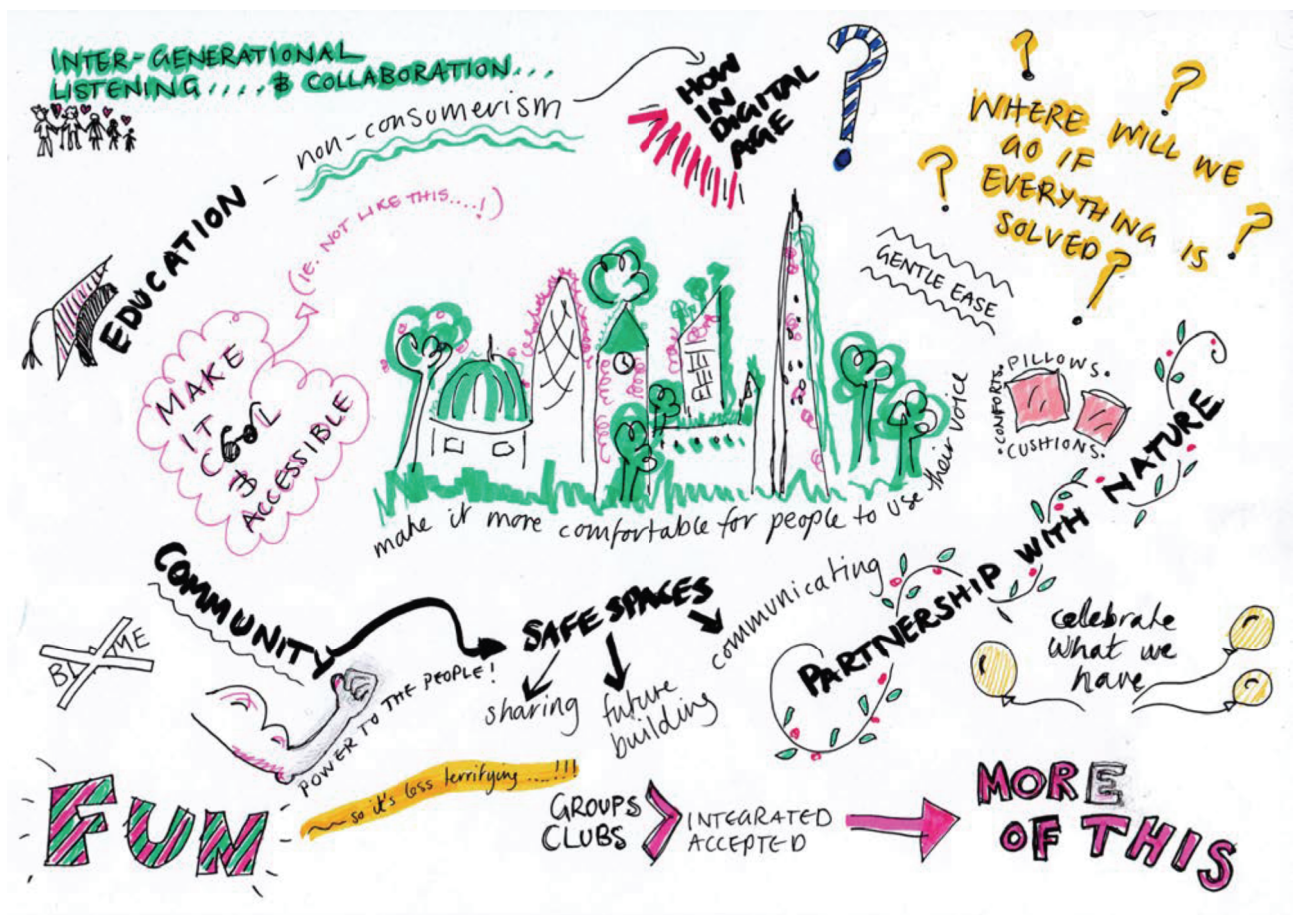 INTER-GENERATIONAL
LISTENING.... & COLLABORATION...
EDUCATION - non-consumerism
HOW
IN
DIGITAL
AGE
?
? ? ? ? ?
WHERE WILL WE
GO IF
EVERYTHING IS
SOLVED
(IE. NOT LIKE THIS....!)
MAKE
IT
COOL
&
ACCESSIBLE
GENTLE EASE
PILLOWS.
COMFORTS.
CUSHIONS.
make it more comfortable for people to use their voice
PARTNERSHIP WITH NATURE
COMMUNITY
SAFE SPACES
sharing
future
building
communicating
BLAME
POWER TO THE PEOPLE!
celebrate
what we
have
FUN
so it's less terrifying....!!!
GROUPS
CLUBS
INTEGRATED
ACCEPTED
MORE
OF THIS